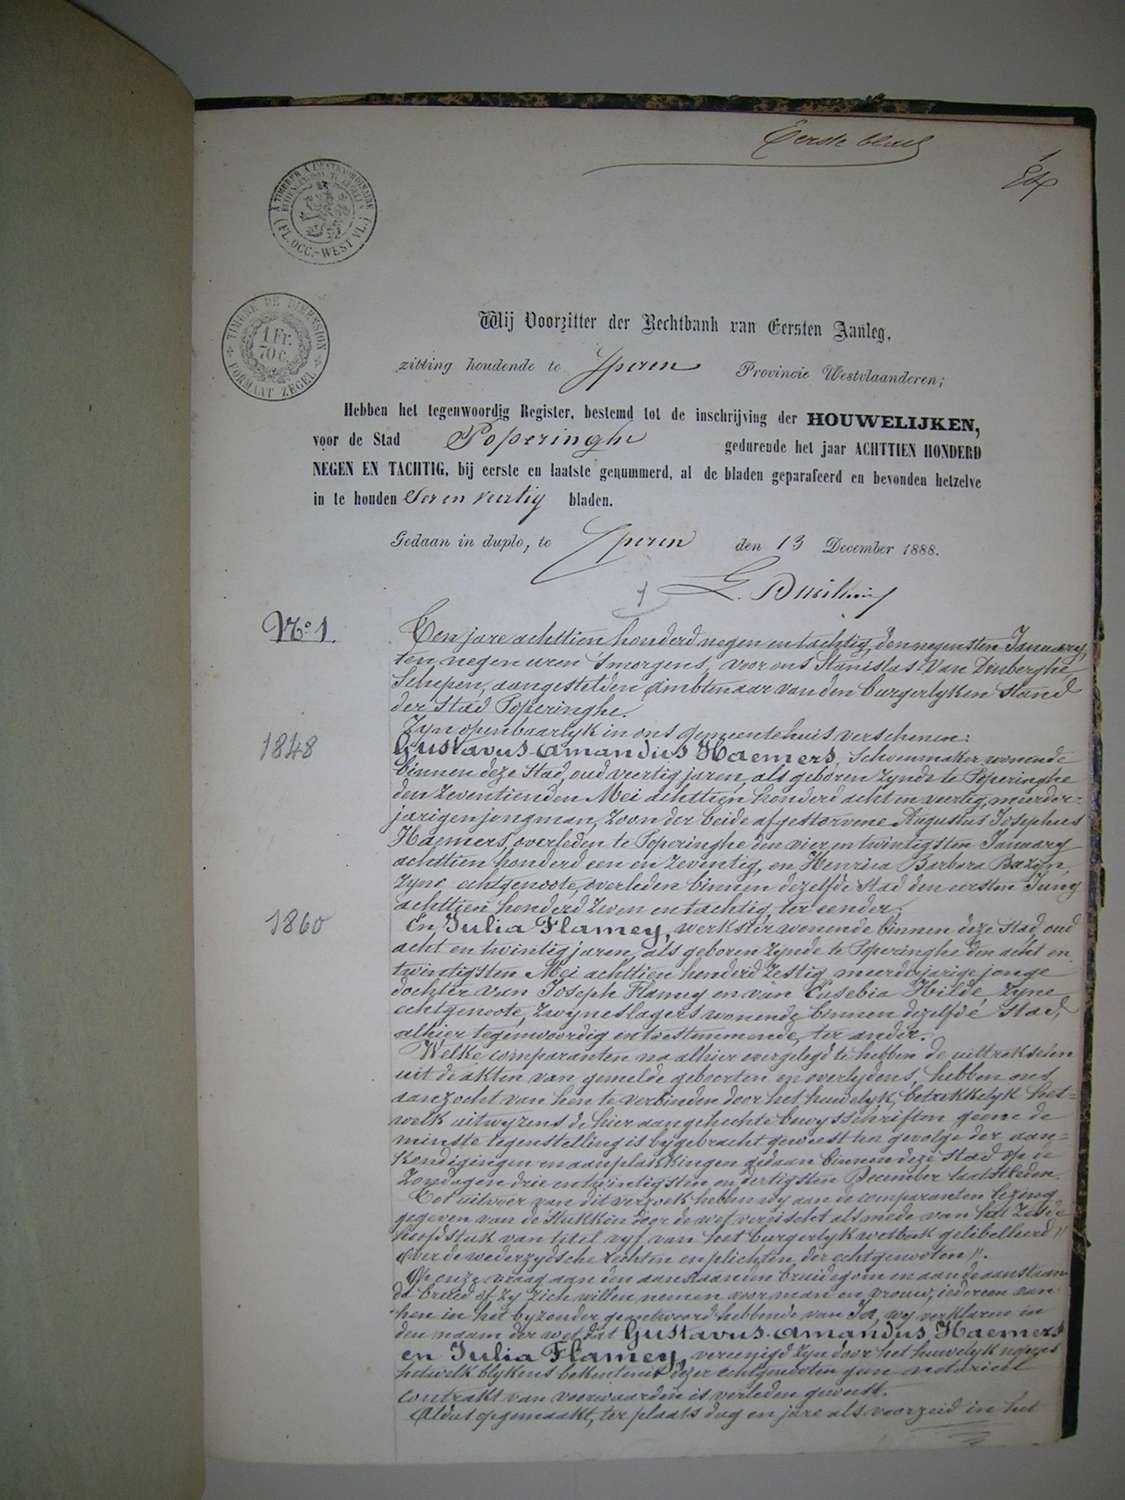 Eerste blad
1
A TIMBRER A L'EXTRAORDINAIRE
(FL. OCC.-WEST VL.)
TIMBRE DE DIMENSION
1 Fr.
70 C.
FORMAAT ZEGEL
Wij Voorzitter der Rechtbank van Eersten Aanleg,
zitting houdende te Yperen Provincie Westvlaanderen;
Hebben het tegenwoordig Register, bestemd tot de inschrijving der HOUWELIJKEN,
voor de Stad Poperinghe gedurende het jaar ACHTTIEN HONDERD
NEGEN EN TACHTIG, bij eerste en laatste genummerd, al de bladen geparafeerd en bevonden hetzelve
in te houden veertig bladen.
Gedaan in duplo, te Yperen den 13 December 1888.
No. 1.
Een jare achttien honderd negen en tachtig, den negensten January,
ten negen uren 's morgens, voor ons Stanislas Van Renberghe
Schepen, aangestelden ambtenaar van den burgerlyken stand
der Stad Poperinghe.
Zyn openbaarlyk in ons gemeentehuis verschenen:
1848
Gustavus-Amandus Haemers, Schoenmaker wonende
binnen deze Stad, oud veertig jaren, als geboren zynde te Poperinghe
den zeventienden Mei achttien honderd acht en veertig, meerder-
jarigen jongman, zoon der beide afgestorvene Augustus Josephus
Haemers, overleden te Poperinghe den vier en twintigsten January
achttien honderd een en zeventig, en Henrica Barbara Bazyn,
zyne echtgenoote, overleden binnen dezelfde stad den eersten Juny
achttien honderd zeven en tachtig, ter eender.
1860
En Julia Flamey, werkster wonende binnen deze stad, oud
acht en twintig jaren, als geboren zynde te Poperinghe den acht en
twintigsten Mei achttien honderd zestig, meerderjarige jonge
dochter van Joseph Flamey en van Eusebia Hilde zyne
echtgenoote, zwyneslagers wonende binnen dezelfde stad,
alhier tegenwoordig en toestemmende, ter ander.
Welke comparanten na alhier overgelegd te hebben de uittrekselen
uit de akten van gemelde geboorten en overlydens, hebben ons
aanzocht van hen te verbinden door het huwelyk, betrekkelyk het-
welk uitwyzens de hier aangehechte bewysschriften geene de
minste tegenstelling is bygebracht geweest ten gevolge der aan-
kondigingen en aanplakkingen gedaan binnen deze stad op de
Zondagen drie en twintigsten en dertigsten December laatstleden.
Tot uitvoer van dit verzoek hebben wy aan de comparanten lezing
gegeven van de stukken door de wet vereischt alsmede van het zesde
hoofdstuk van titel vyf van het burgerlyk wetboek gelibelleerd //
Over de wederzydsche rechten en plichten der echtgenooten //.
Op onze vraag aan den aanstaanden bruidegom en aan de aanstaan-
de bruid of zy zich willen nemen voor man en vrouw, iedereen van
hen in het byzonder geantwoord hebbende van Ja, wy verklaren in
den naam der wet dat Gustavus-Amandus Haemers
en Julia Flamey, vereenigd zyn door het huwelyk nopens
hetwelk blykens bekentenis dezer echtgenooten geen notariëel
contrakt van voorwaarden is verleden geweest.
Aldus opgemaakt, ter plaats dag en jare als voorzeid in het